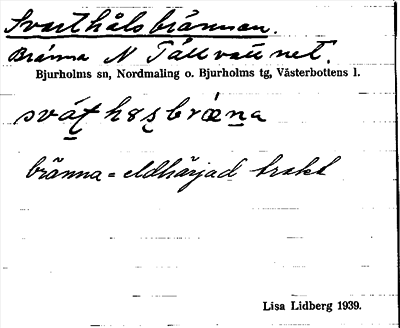 Svarthålsbrännan.
Bränna N Tällvattnet.
Bjurholms sn, Nordmaling o. Bjurholms tg, Västerbottens l.
bränna = eldhärjad trakt
Lisa Lidberg 1939.